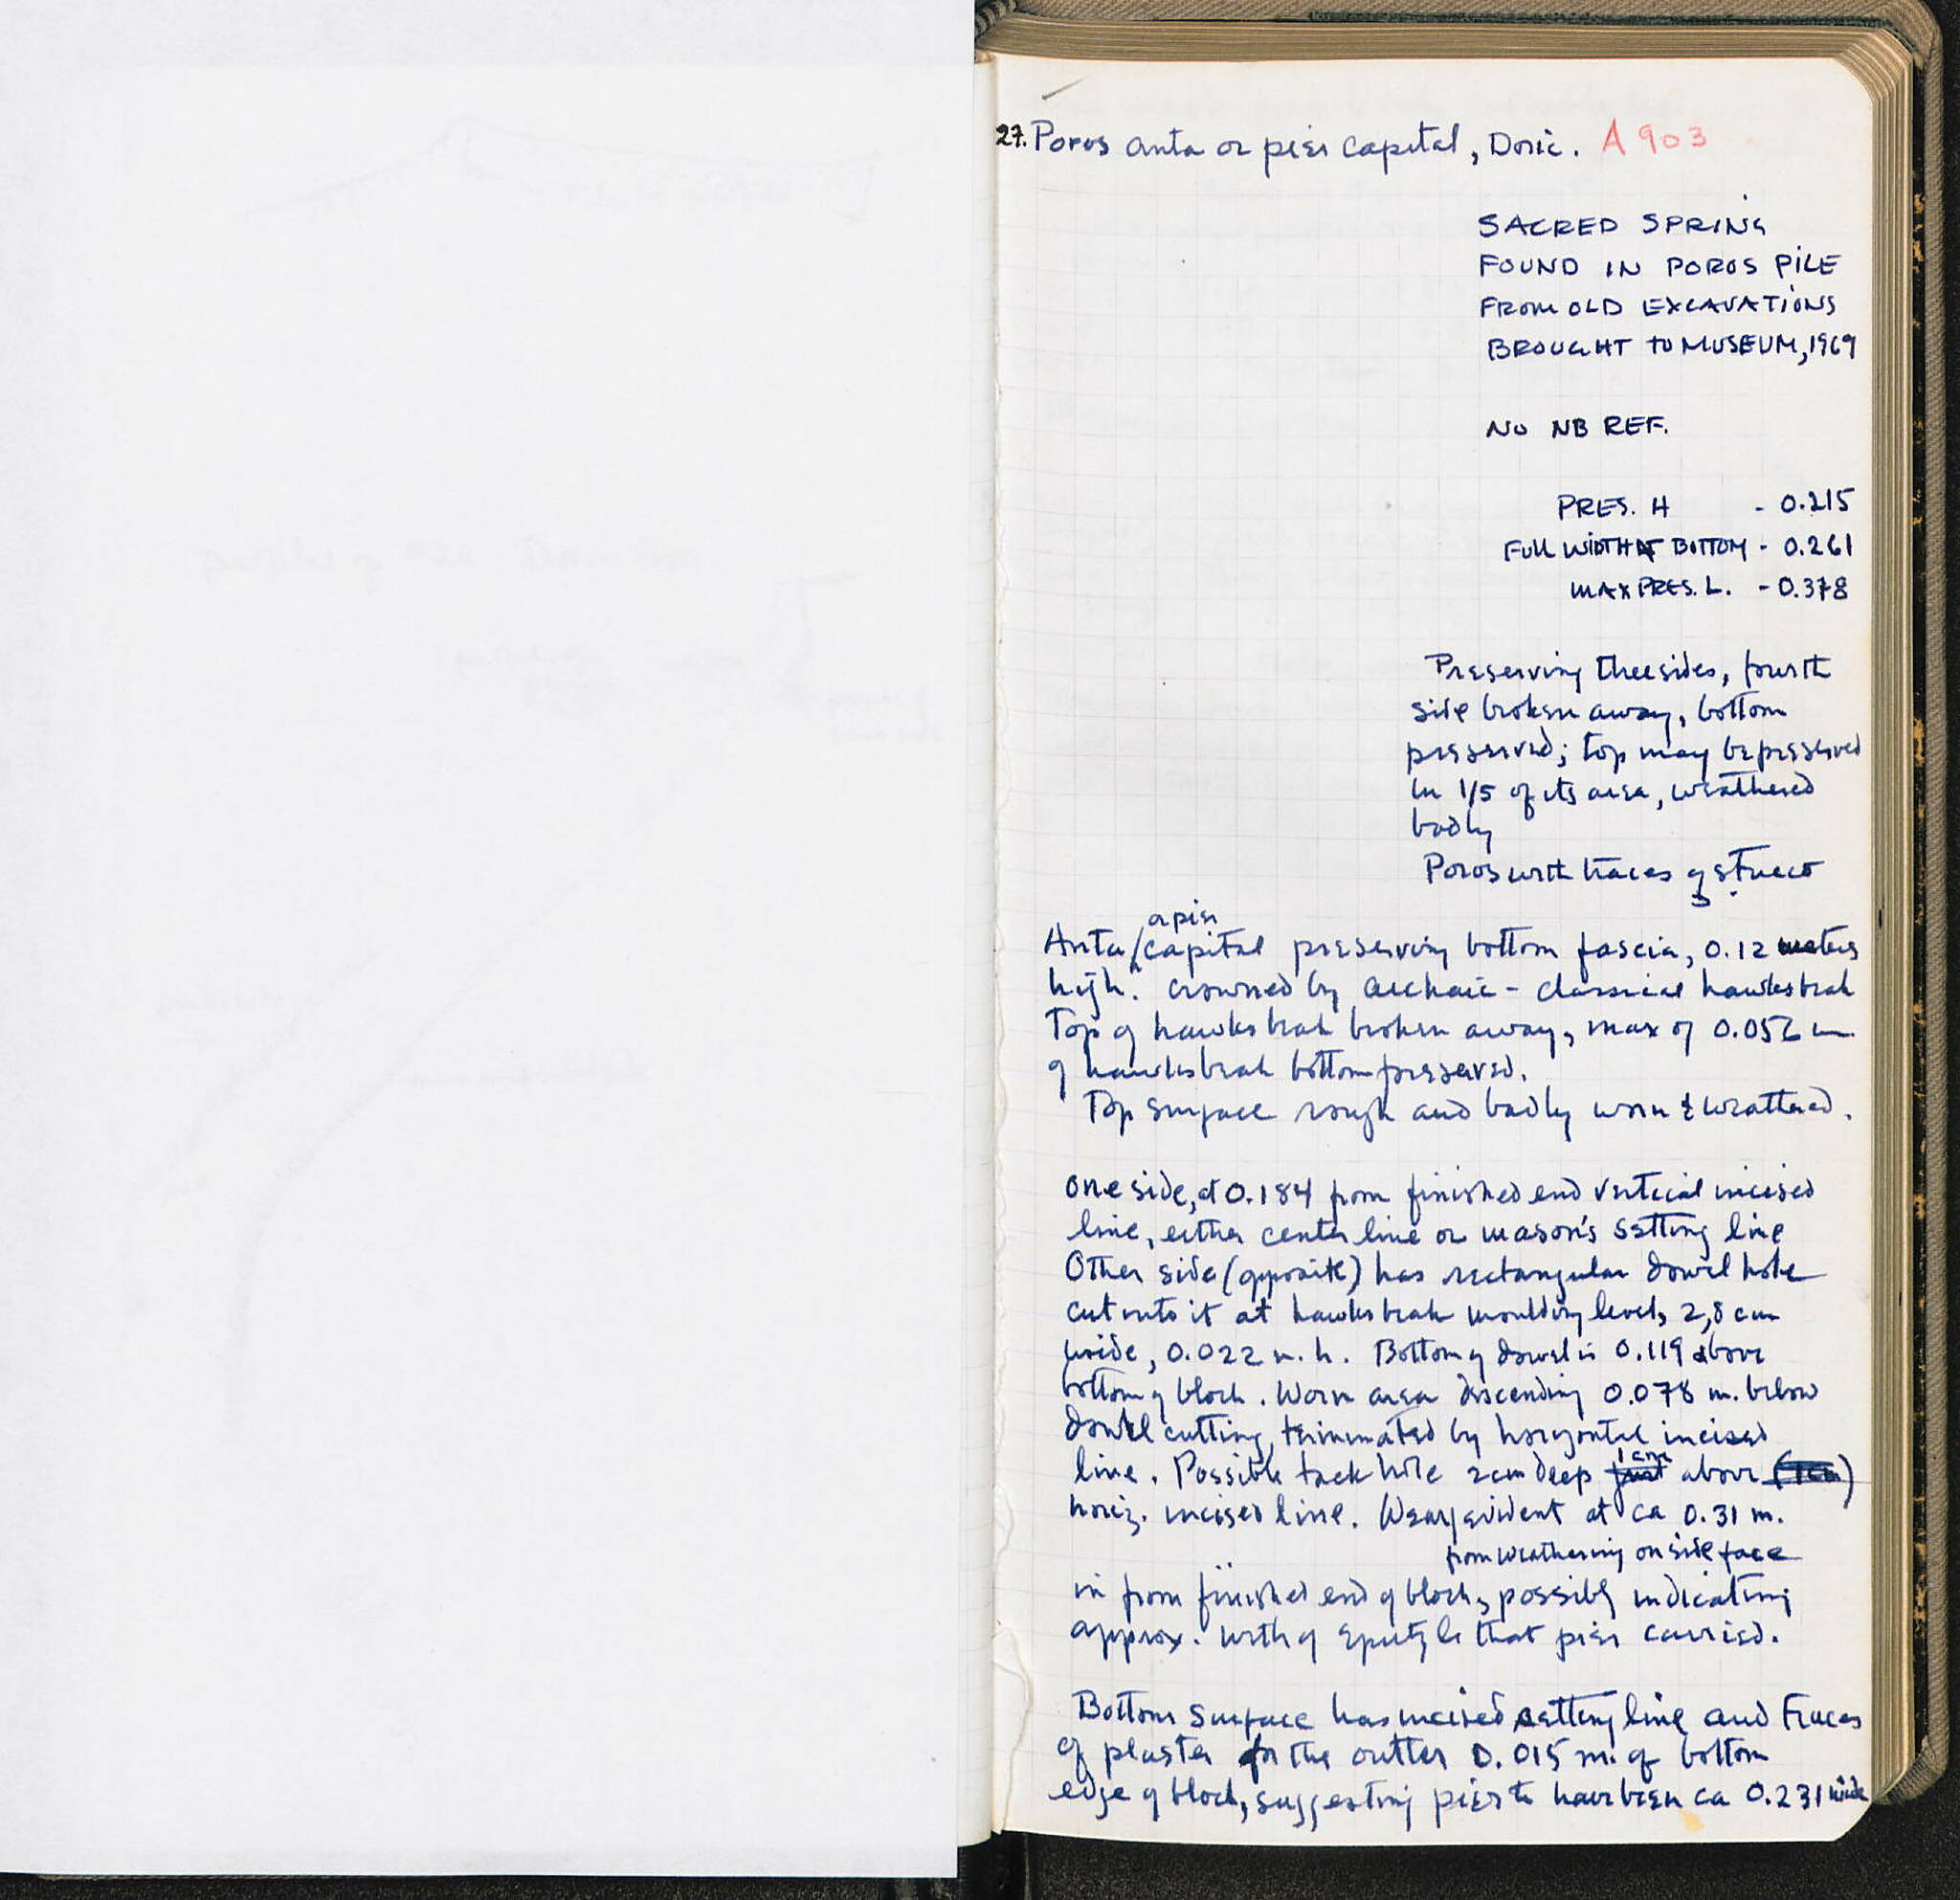 27. Poros anta or pier capital, Doric. A 903
SACRED SPRING
FOUND IN POROS PILE
FROM OLD EXCAVATIONS
BROUGHT TO MUSEUM, 1969
NO NB REF.
PRES. H - 0.215
FULL WIDTH AT BOTTOM - 0.261
MAX PRES. L. - 0.378
Preserving three sides, fourth
side broken away, bottom
preserved; top may be preserved
in 1/5 of its area, weathered
badly
Poros with traces of stucco
or pier
Anta/capital preserving bottom fascia, 0.12 meters
high. crowned by archaic - classical hawksbeak
Top of hawksbeak broken away, max of 0.056 m
of hawksbeak bottom preserved.
Top surface rough and badly worn & weathered.
one side, at 0.184 from finished end vertical incised
line, either center line or mason's setting line
Other side (opposite) has rectangular dowel hole
cut into it at hawksbeak moulding level, 2,8 cm
wide, 0.022 m. h. Bottom of dowel is 0.119 above
bottom of block. Worn area descending 0.078 m. below
dowel cutting, terminated by horizontal incised
1 cm
line. Possible tack hole 2 cm deep just above (1 cm)
horiz. incised line. Wear evident at ca 0.31 m.
from weathering on side face
in from finished end of block, possibly indicating
approx. width of epistyle that pier carried.
Bottom surface has incised setting line and traces
of plaster for the outter 0.015 m. of bottom
edge of block, suggesting pier to have been ca 0.231 wide